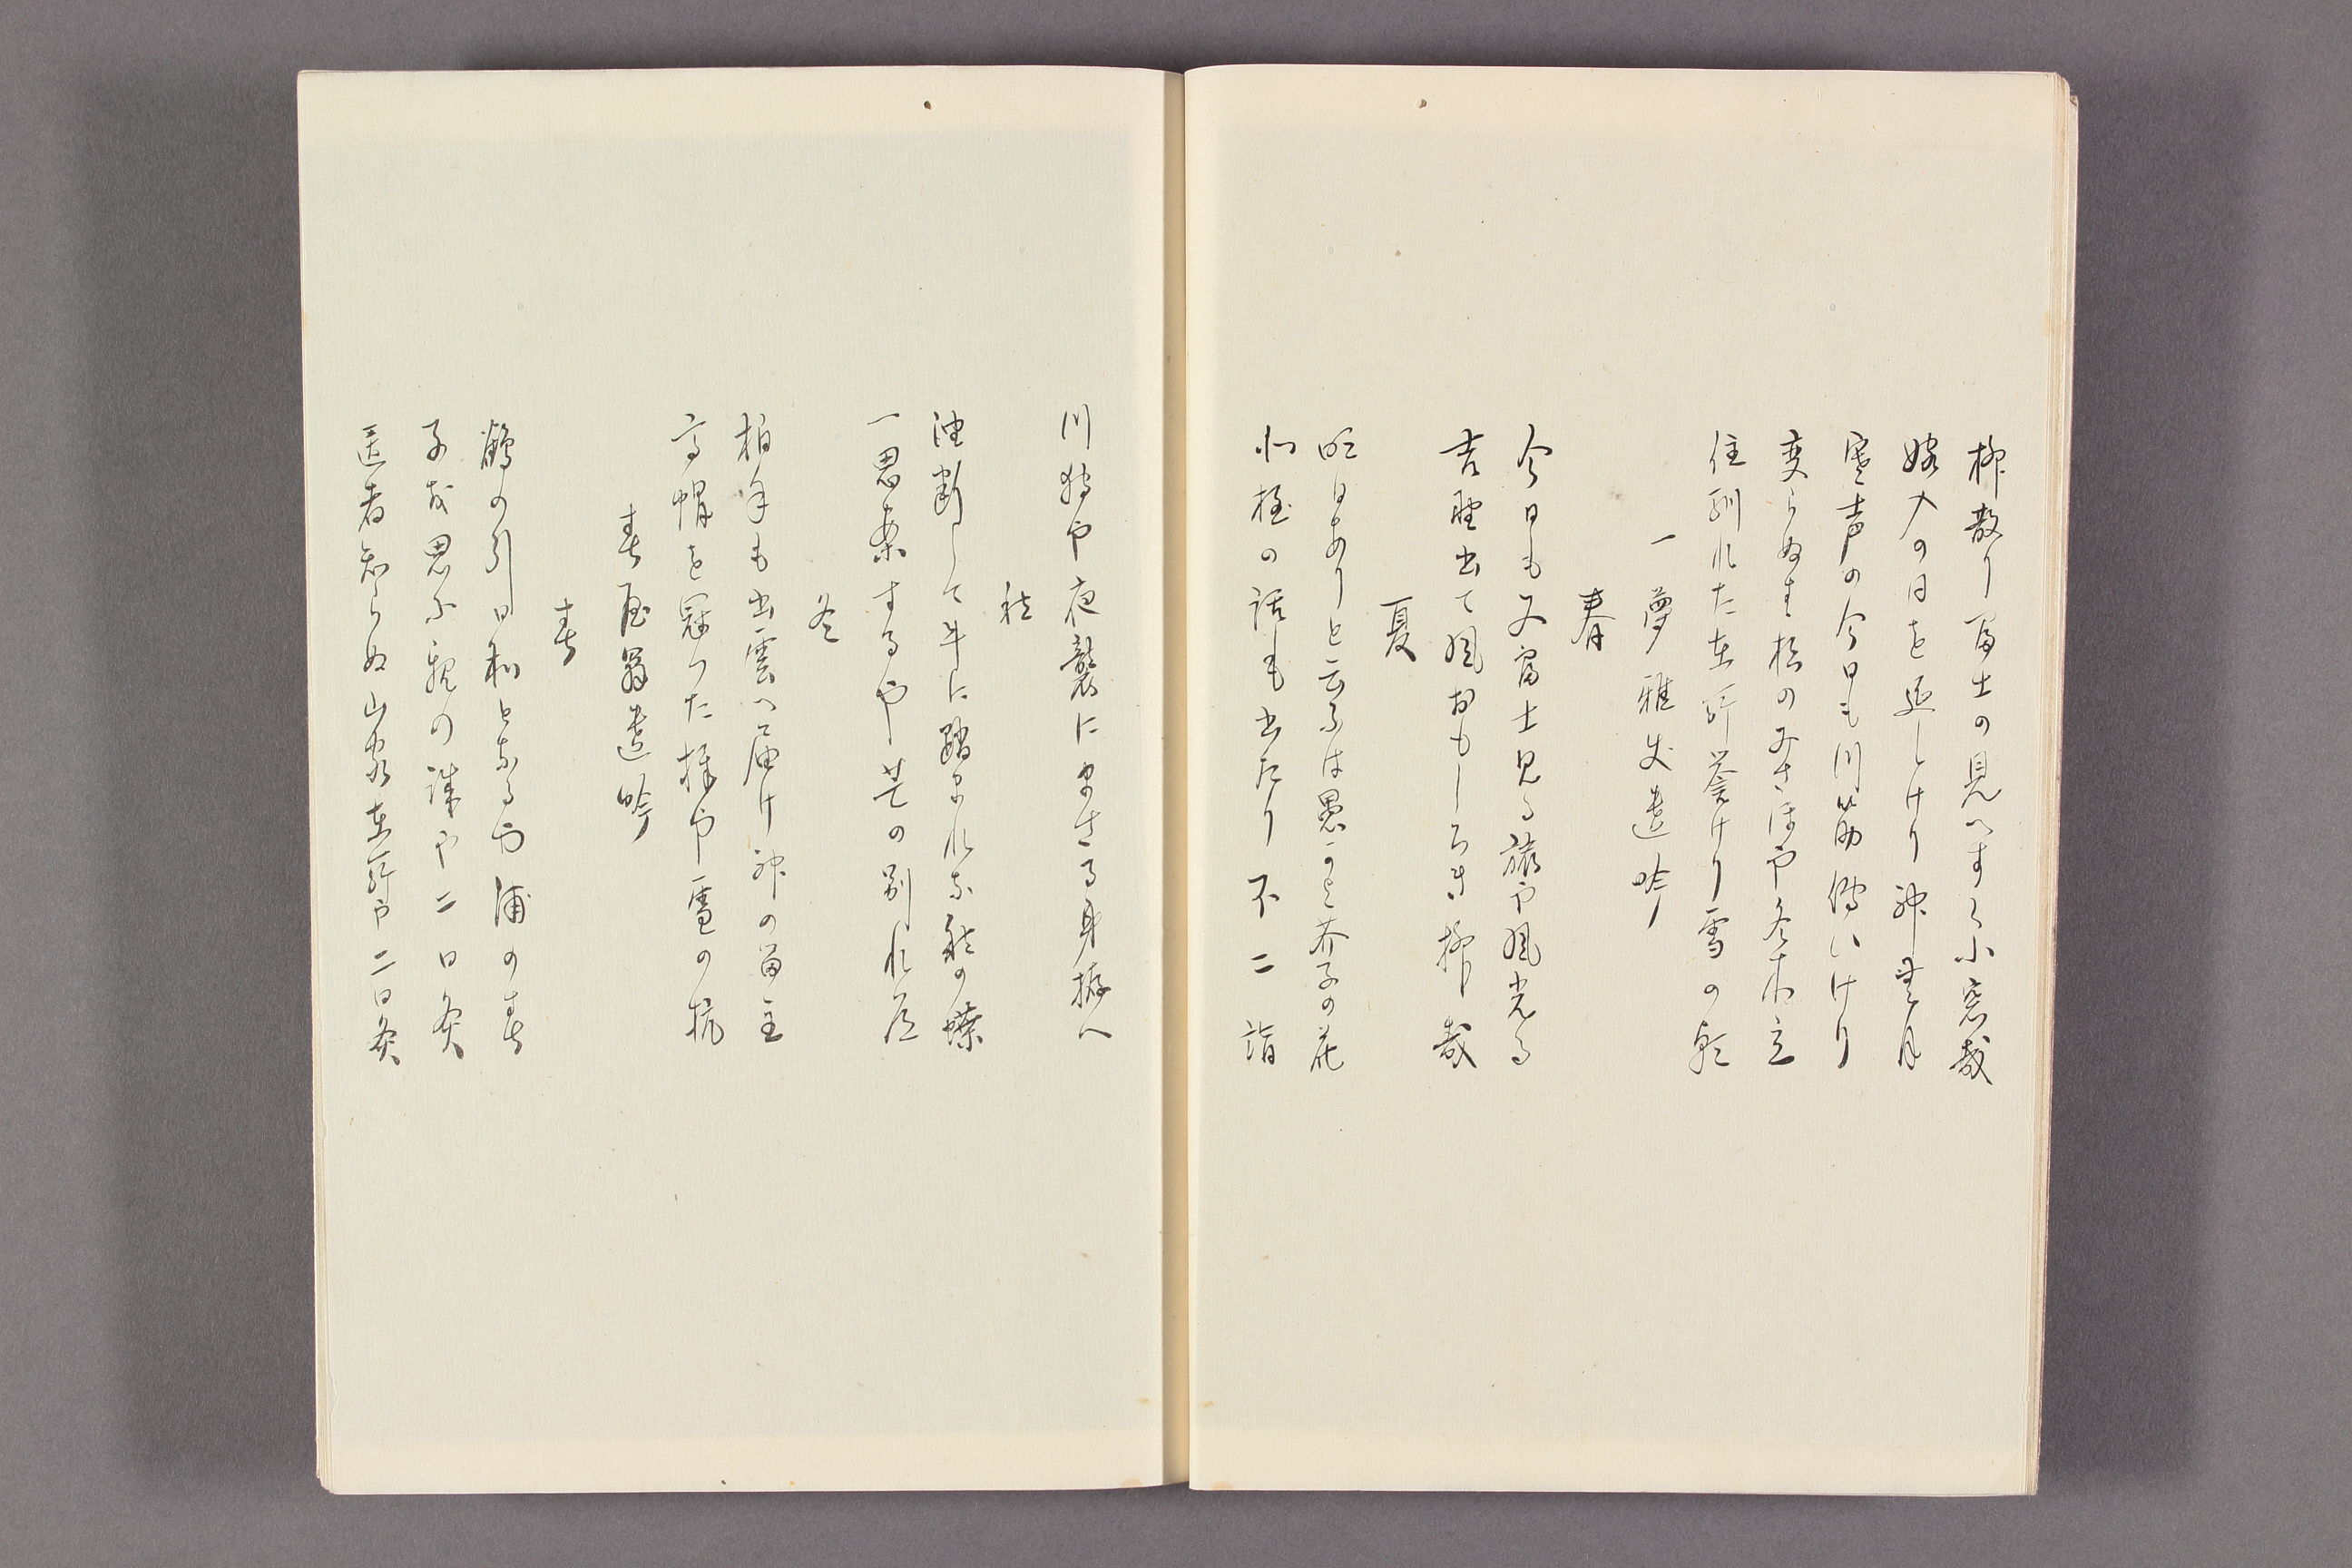 柳散り富士の見へすく小窓哉
嫁入の日を延しけり神無月
寒声の今日も川筋伝ひけり
変らぬは松のみさほや冬木立
住馴れた在所誉けり雪の乾
一夢雅丈遺吟
春
今日も又富士見る旅や風光る
吉野出て風おもしろき柳哉
夏
明日ありと云ふは愚かそ芥子の花
北極の話も出たり不二詣
川狩や夜襲にまさる身拵へ
秋
油断して牛に踏まれな秋の蝶
一思案するや芒の別れ道
冬
柏手も出雲へ届け神の留主
高帽を冠つた様や雪の杭
春屋翁遺吟
春
鶴の引日和となるや浦の春
子を思ふ親の譲や二日灸
医者知らぬ山家在所や二日灸